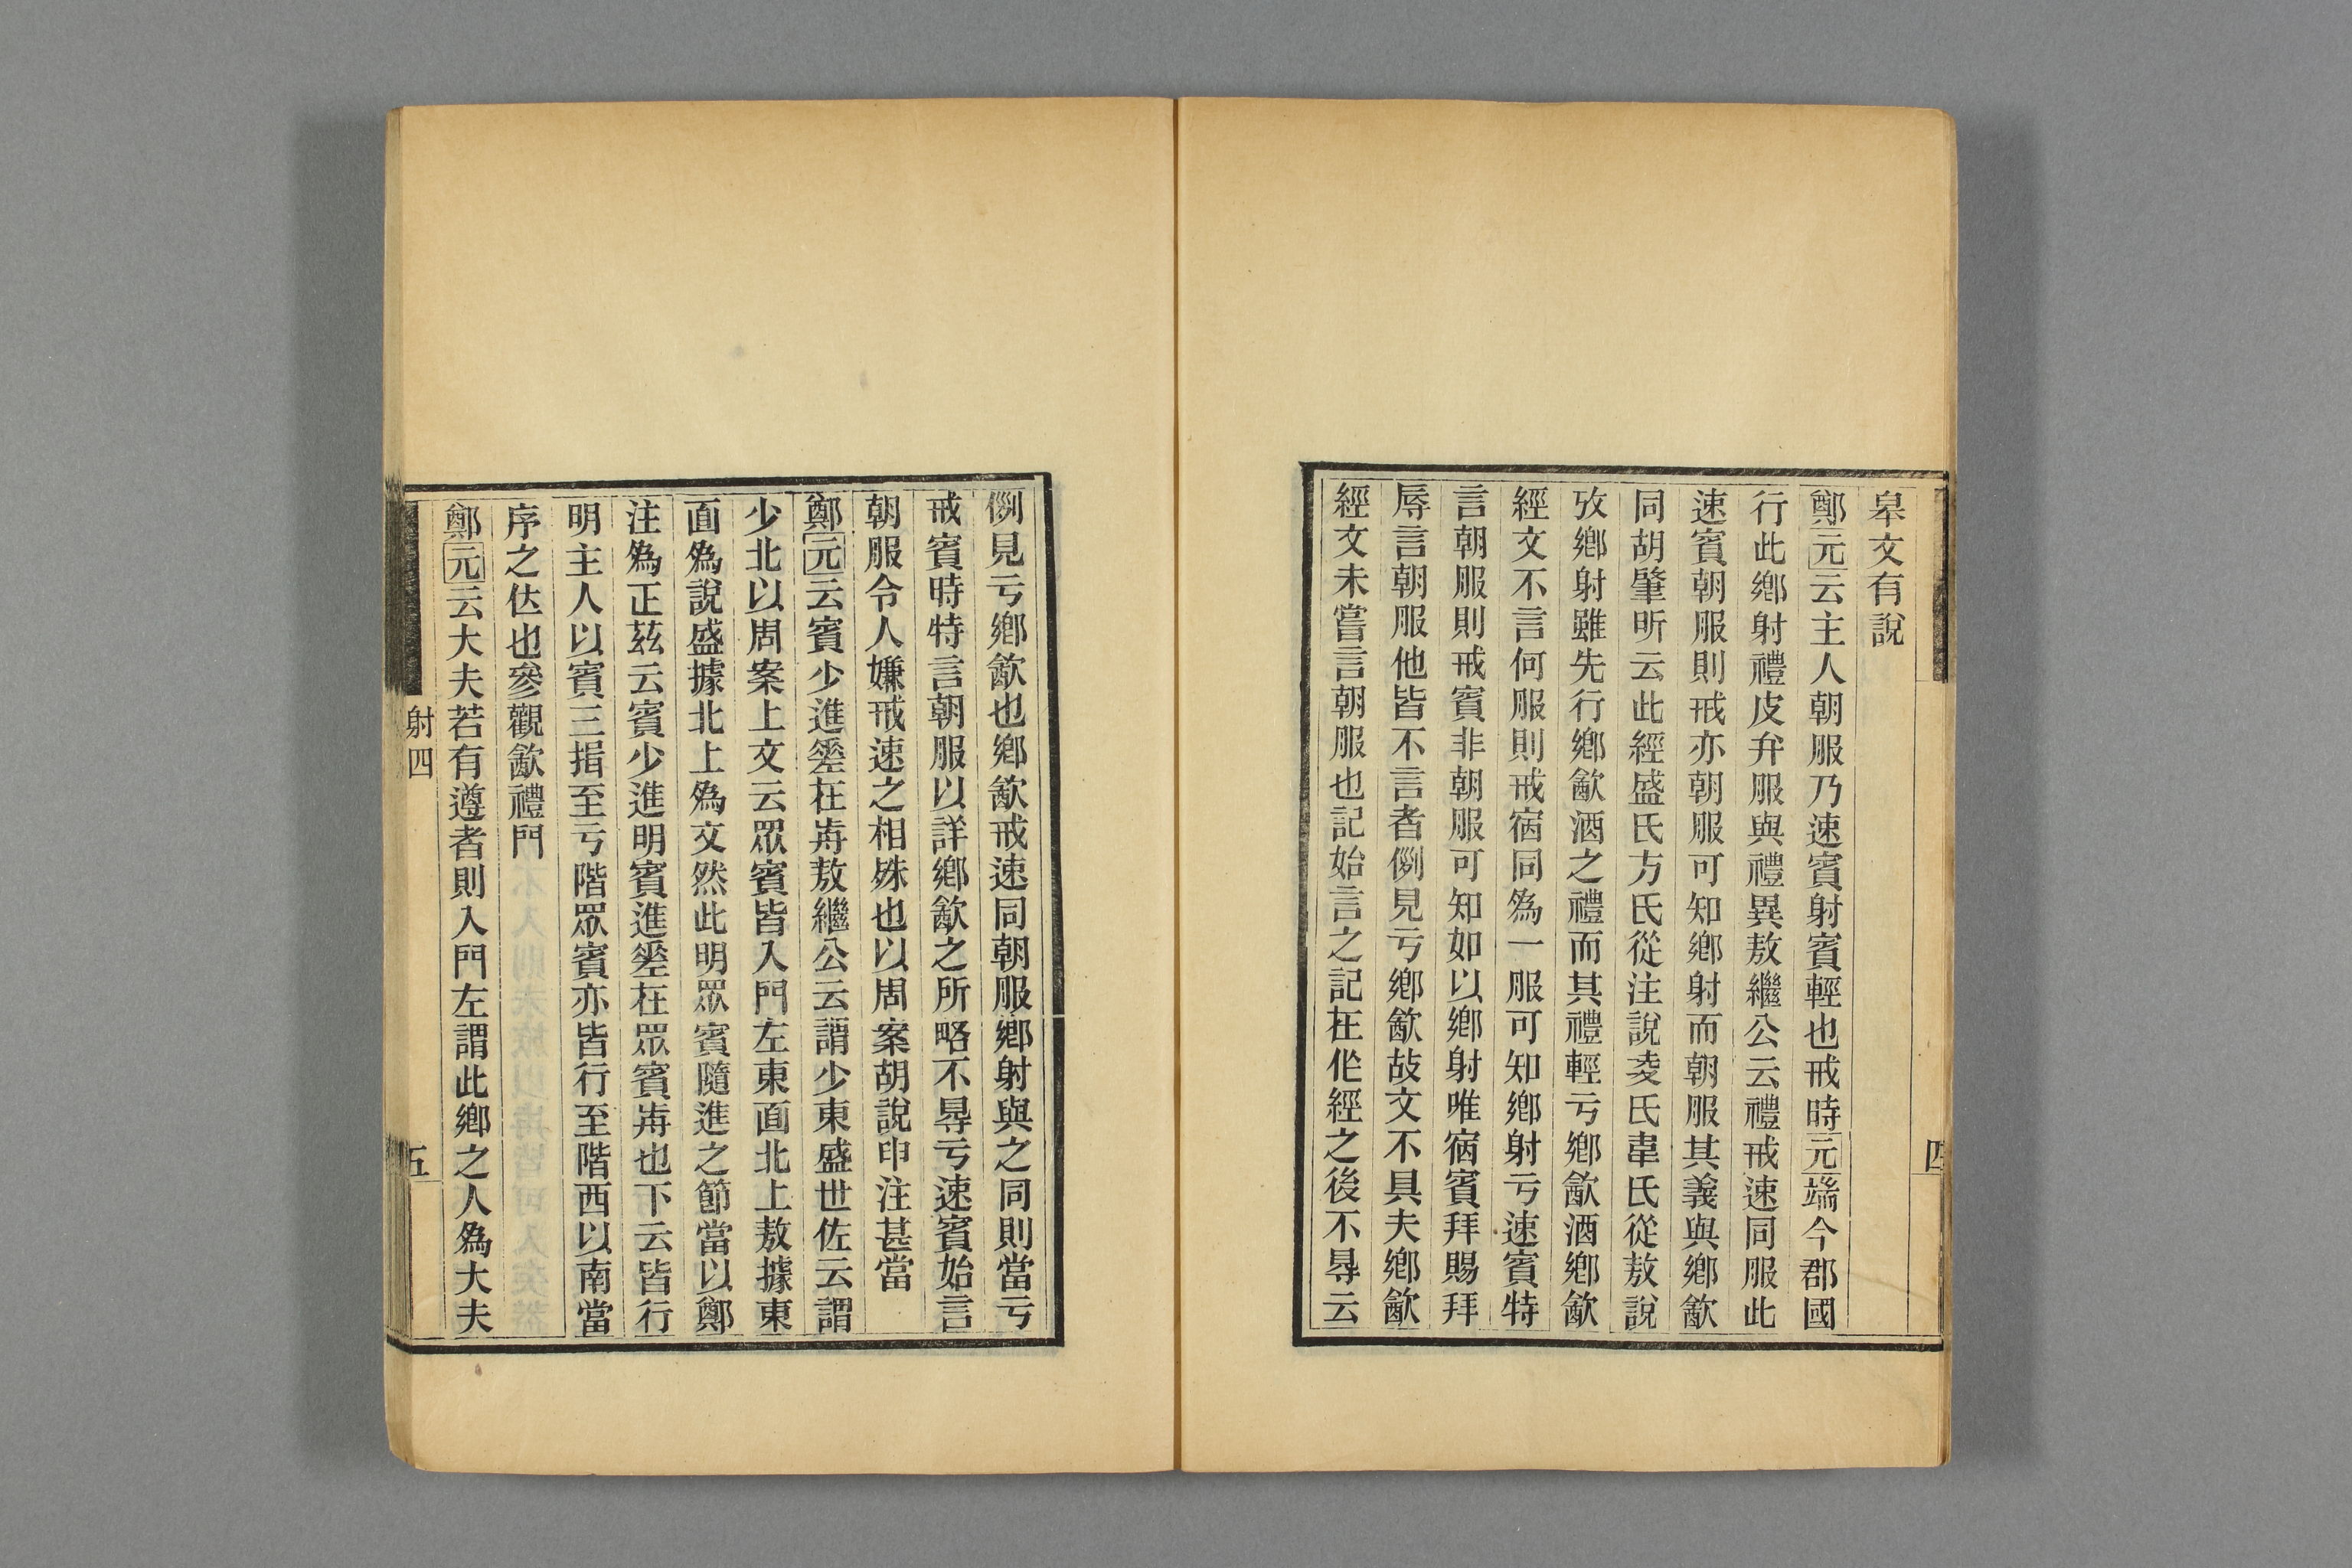 皋文有說
鄭元云主人朝服乃速賓射賓輕也戒時元端今郡國
行此鄉射禮皮弁服與禮異敖繼公云禮戒速同服此
速賓朝服則戒亦朝服可知鄉射而朝服其義與鄉歈
同胡肇昕云此經盛氏方氏從注說夌氏韋氏從敖說
攷鄉射雖先行鄉歈酒之禮而其禮輕亏鄉歈酒鄉歈
經文不言何服則戒宿同為一服可知鄉射亏速賓特
言朝服則戒賓非朝服可知如以鄉射唯宿賓拜賜拜
辱言朝服他皆不言者㓮見亏鄉歈故文不具夫鄉歈
經文未嘗言朝服也記始言之記在作經之後不㝵云
㓮見亏鄉歈也鄉歈戒速同朝服鄉射與之同則當亏
戒賓時特言朝服以詳鄉歈之所略不㝵亏速賓始言
朝服令人嫌戒速之相殊也以周案胡說申注甚當
鄭元云賓少進差在歬敖繼公云謂少東盛世佐云謂
少北以周案上文云眾賓皆入門左東面北上敖據東
面為說盛據北上為文然此明眾賓隨進之節當以鄭
注為正茲云賓少進明賓進差在眾賓歬也下云皆行
明主人以賓三揖至亏階眾賓亦皆行至階西以南當
序之位也參觀歈禮門
鄭元云大夫若有遵者則入門左謂此鄉之人為大夫
射四
五